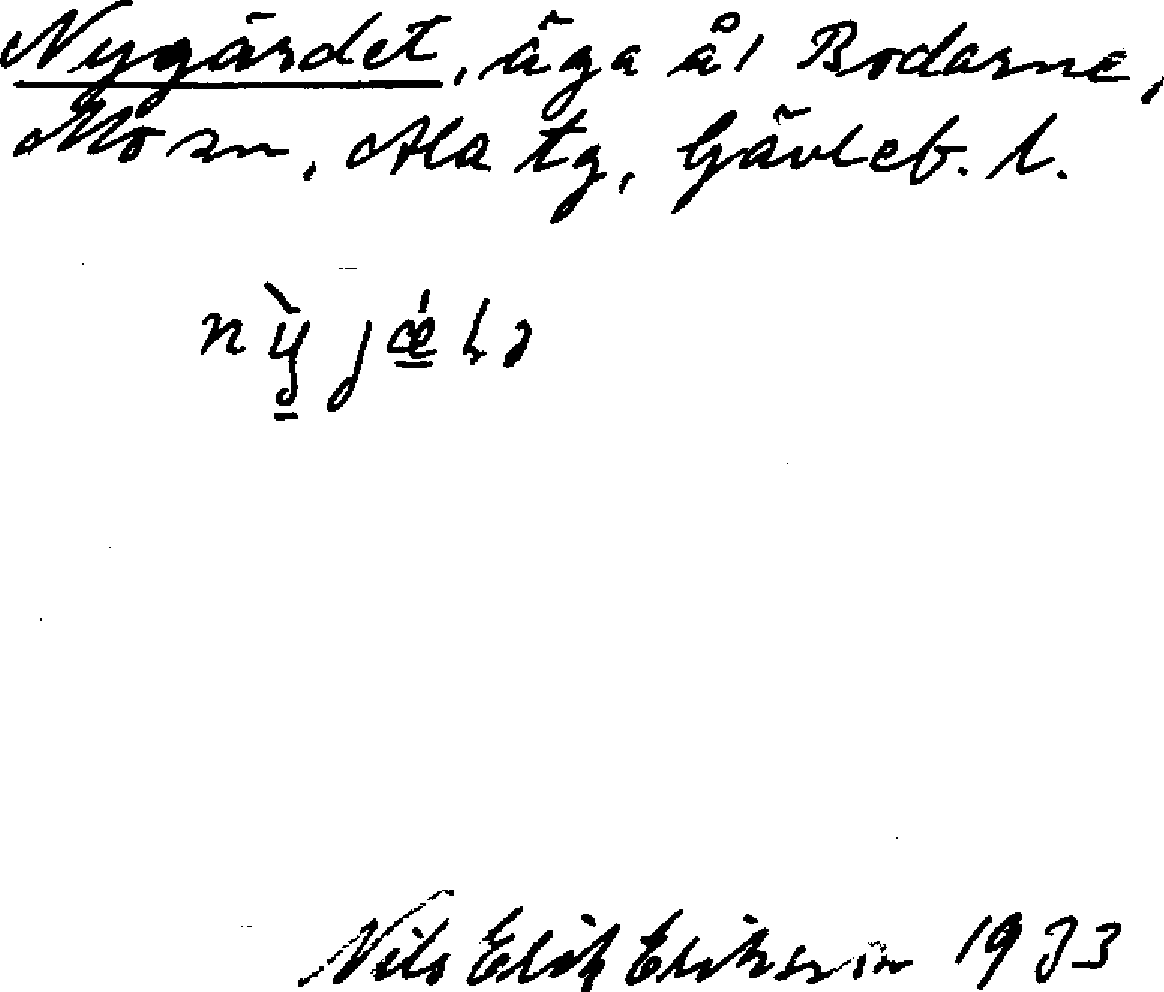 Nygärdet, äga å 1 Bodarne,
Mo sn, Ala tg, Gävleb. l.
Nils Erik Eriksson 1933